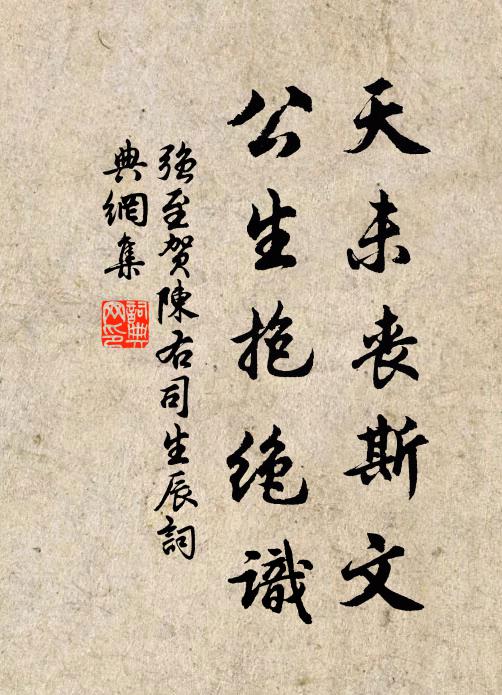 天未丧斯文
公生抱绝识
强至贺陈右司生辰词
典网集
词典网印